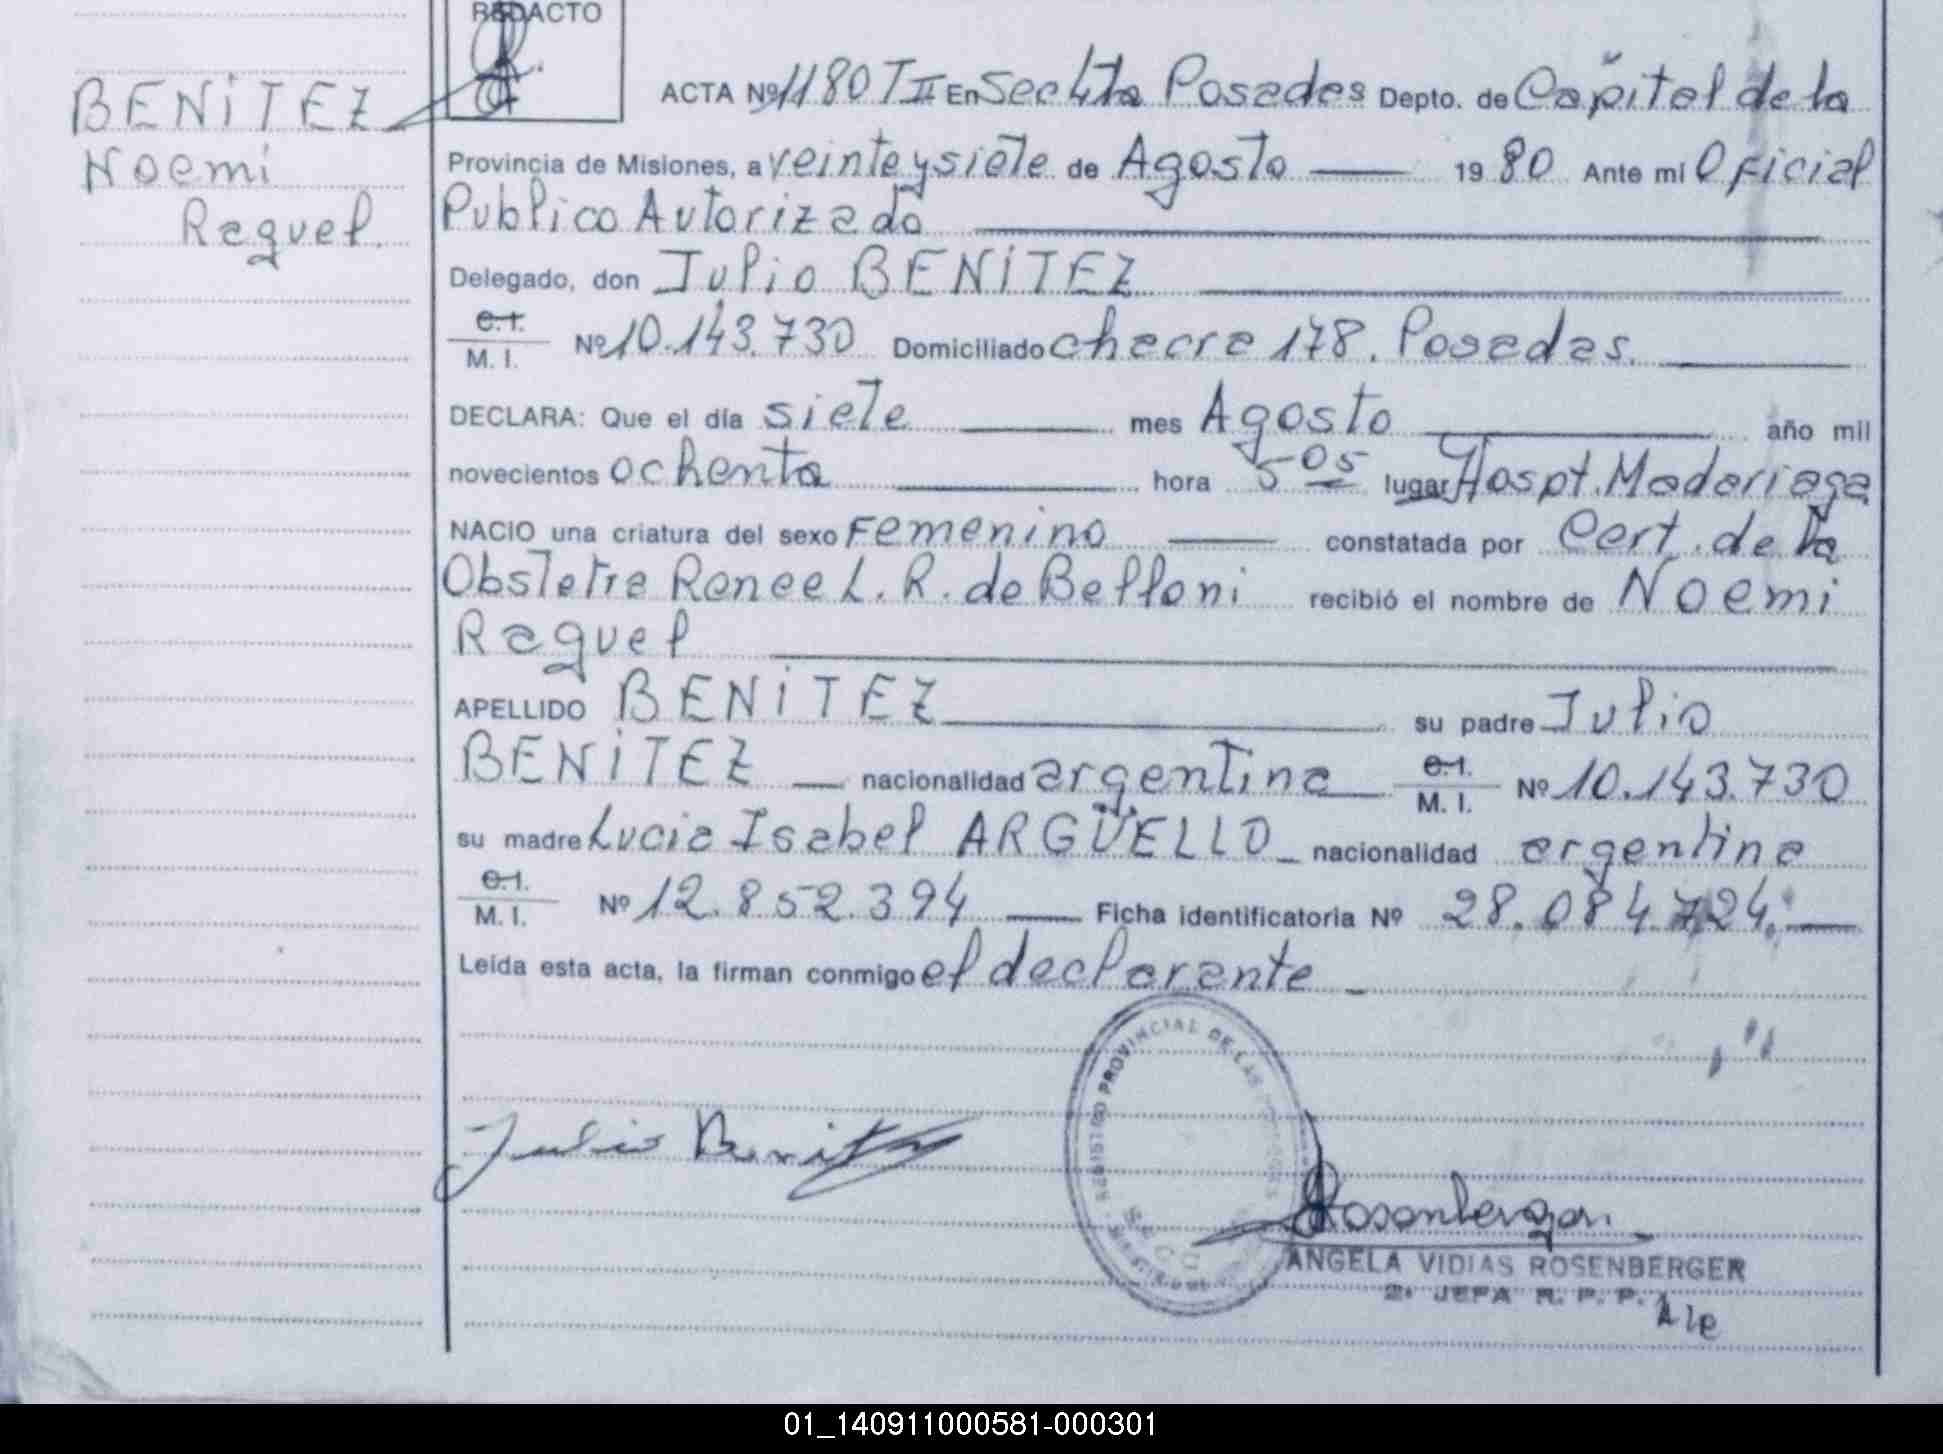 REDACTO
BENITEZ
Noemi
Raquel.
ACTA Nº 1180 T II En Secc 4ta Posadas Depto. de Capital de la
Provincia de Misiones, a veinteysiete de Agosto 1980 Ante mi Oficial
Publico Autorizado
Delegado, don Julio BENITEZ
C.I. M. I. Nº 10.143.730 Domiciliado chacra 178. Posadas.
DECLARA: Que el día siete mes Agosto año mil
novecientos ochenta hora 5 05 lugar Hospt. Madariaga
NACIO una criatura del sexo Femenino constatada por Cert. de la
Obstetra Renee L. R. de Belloni recibió el nombre de Noemi
Raquel
APELLIDO BENITEZ su padre Julio
BENITEZ nacionalidad argentina C.I. M. I. Nº 10.143.730
su madre Lucia Isabel ARGÜELLO nacionalidad argentina
C.I. M. I. Nº 12.852.394 Ficha identificatoria Nº 28.084.724.
Leída esta acta, la firman conmigo el declarante
REGISTRO PROVINCIAL DE LAS
Julio Benitez
Rosenberger
ANGELA VIDIAS ROSENBERGER
2ª JEFA R. P. P.
Ale
01_140911000581-000301